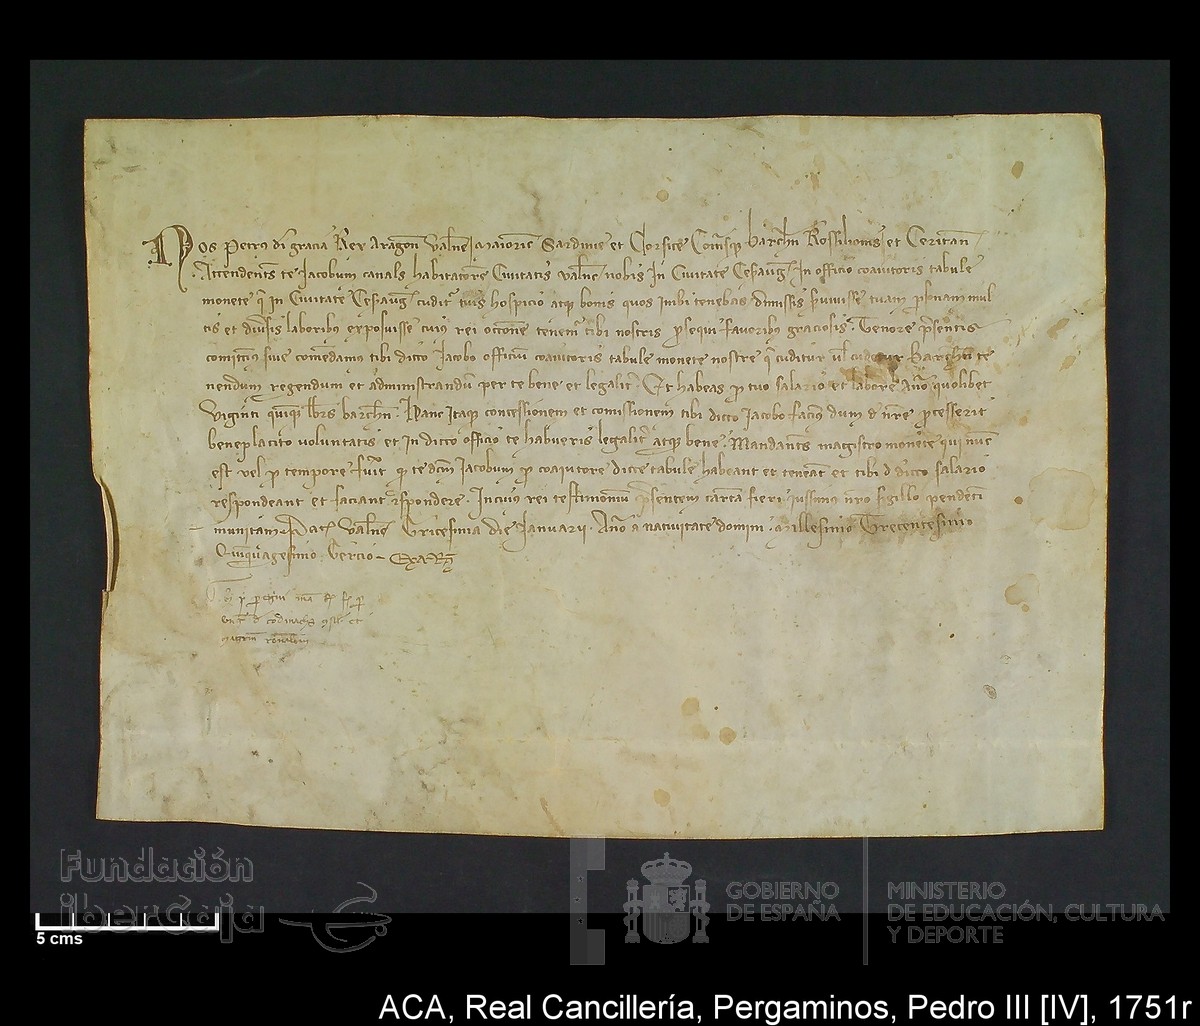 Nos Petrus di gracia Rex Aragon Valnc Maioric Sardinie et Corsice Comesq barchn Rossilionis et Ceritan
Attendents te Jacobum canals habitatore Civitatis Valnc nobis in Civitate Cesaug in officio coaiutoris tabule
monete q in Civitate Cesaug cudit tuis hospicio atq bonis quos inibi tenebas dimissis servivisse tuam psonam mul
tis et diversis laboribus exposuisse cuius rei occone tenem tibi nostris psequi favoribus graciosis. Tenore psentis
comittims sive comedamus tibi dicto Jacobo officium coaiutoris tabule monete nostre q cuditur vl cudetur Barchn te
nendum regendum et administrandu per te bene et legalit. Et habeas p tuo salario et labore Ano quolibet
viginti quinq lbrs barchn. Hanc itaq concessionem et comissionem tibi dicto Jacobo facims dum d nre pcesserit
beneplacito voluntatis et in dicto officio te habueris legalit atq bene. Mandants magistro monete qui nuc
est vel p tempore fuit q te dcm Jacobum p coaiutore dicte tabule habeant et teneat et tibi d dicto salario
respondeant et faciant respondere. In cuius rei testimonium psentem carta fieri iussimus nro sigillo pendeti
munitam. Dat Valnc Tricesima die Januarii. Ano a nativitate domini Millesimo Trecentesimo
Quinquagesimo Tercio - Exa R
5 cms
Fundación
iberCaja
GOBIERNO
DE ESPAÑA
MINISTERIO
DE EDUCACIÓN, CULTURA
Y DEPORTE
ACA, Real Cancillería, Pergaminos, Pedro III [IV], 1751r